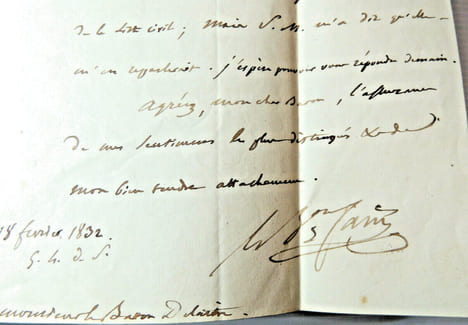 de la liste civil ; mais S. M. m'a dit qu'elle
m'en reparlerait. j'espère pouvoir vous répondre demain.
Agréez, mon cher Baron, l'assurance
de mes sentimens les plus distingués & de
mon bien tendre attachement.
18 février 1832.
le Bon
G. h. de S.
monsieur le Baron